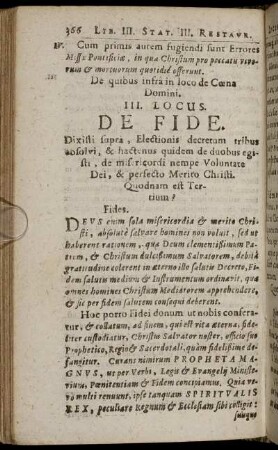 366 LIB. III. STAT. III. RESTAUR.
IV. Cum primis autem fugiendi sunt Errores
Missæ Pontificiæ, in qua Christum pro peccatis vivo-
rum & mortuorum quotidiè offerunt.
De quibus infrà in loco de Cœna
Domini.
III. LOCUS.
DE FIDE.
Dixisti suprà, Electionis decretum tribus
absolvi, & hactenus quidem de duobus egi-
sti, de misericordi nempe Voluntate
Dei, & perfecto Merito Christi.
Quodnam est Ter-
tium?
Fides.
DEUS enim sola misericordia & merito Chri-
sti, absolutè salvare homines non voluit, sed ut
haberent rationem, qua Deum clementissimum Pa-
trem, & Christum dulcissimum Salvatorem, debitâ
gratitudine colerent in æterno isto salutis Decreto, Fi-
dem salutis medium & Instrumentum ordinavit, qua
omnes homines Christum Mediatorem apprehendere,
& sic per fidem salutem consequi deberent.
Hoc porrò Fidei donum ut nobis conferra-
tur, & collatum, ad finem, qui est vita æterna, fide-
liter custodiatur, Christus Salvator noster, officio suo
Prophetico, Regio & Sacerdotali, quàm fidelissimè de-
fangitur. Curans nimirum PROPHETA MA-
GNUS, ut per Verbi, Legis & Evangelij Ministe-
rium, Pœnitentiam & Fidem concipiamus. Quia ve-
rò multi renuunt, ipse tanquam SPIRITUALIS
REX, peculiare Regnum & Ecclesiam sibi colligit: